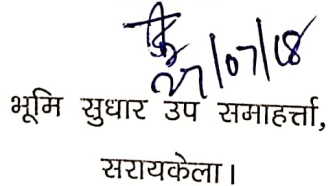 27/07/18
भूमि सुधार उप समाहर्त्ता,
सरायकेला।